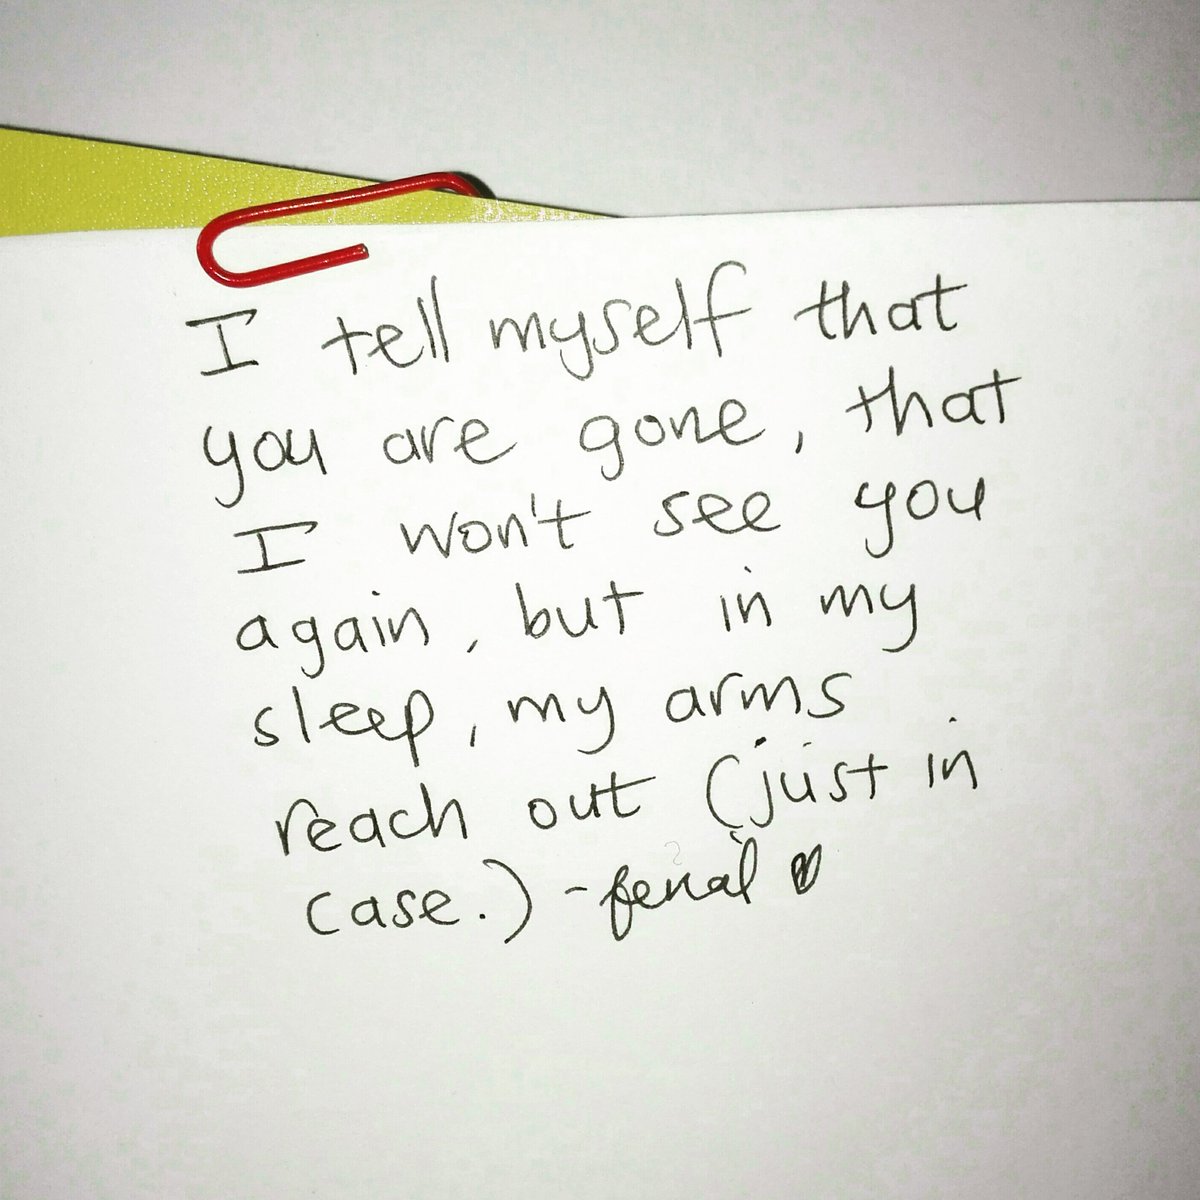 I tell myself that
you are gone, that
I won't see you
again, but in my
sleep, my arms
reach out (just in
case.) -